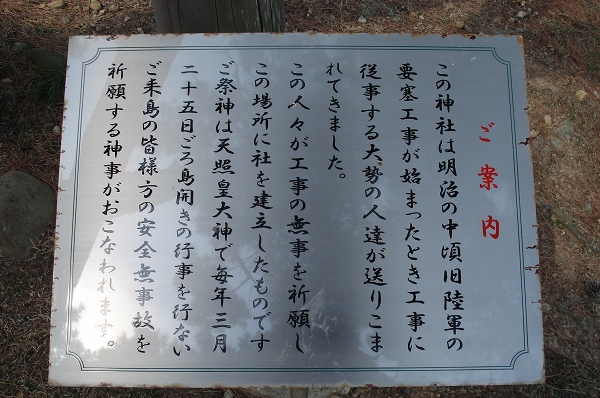 ご案内
この神社は明治の中頃旧陸軍の
要塞工事が始まったとき工事に
従事する大勢の人達が送りこま
れてきました。
この人々が工事の無事を祈願し
この場所に社を建立したものです
ご祭神は天照皇大神で毎年三月
二十五日ごろ島開きの行事を行ない
ご来島の皆様方の安全無事故を
祈願する神事がおこなわれます。